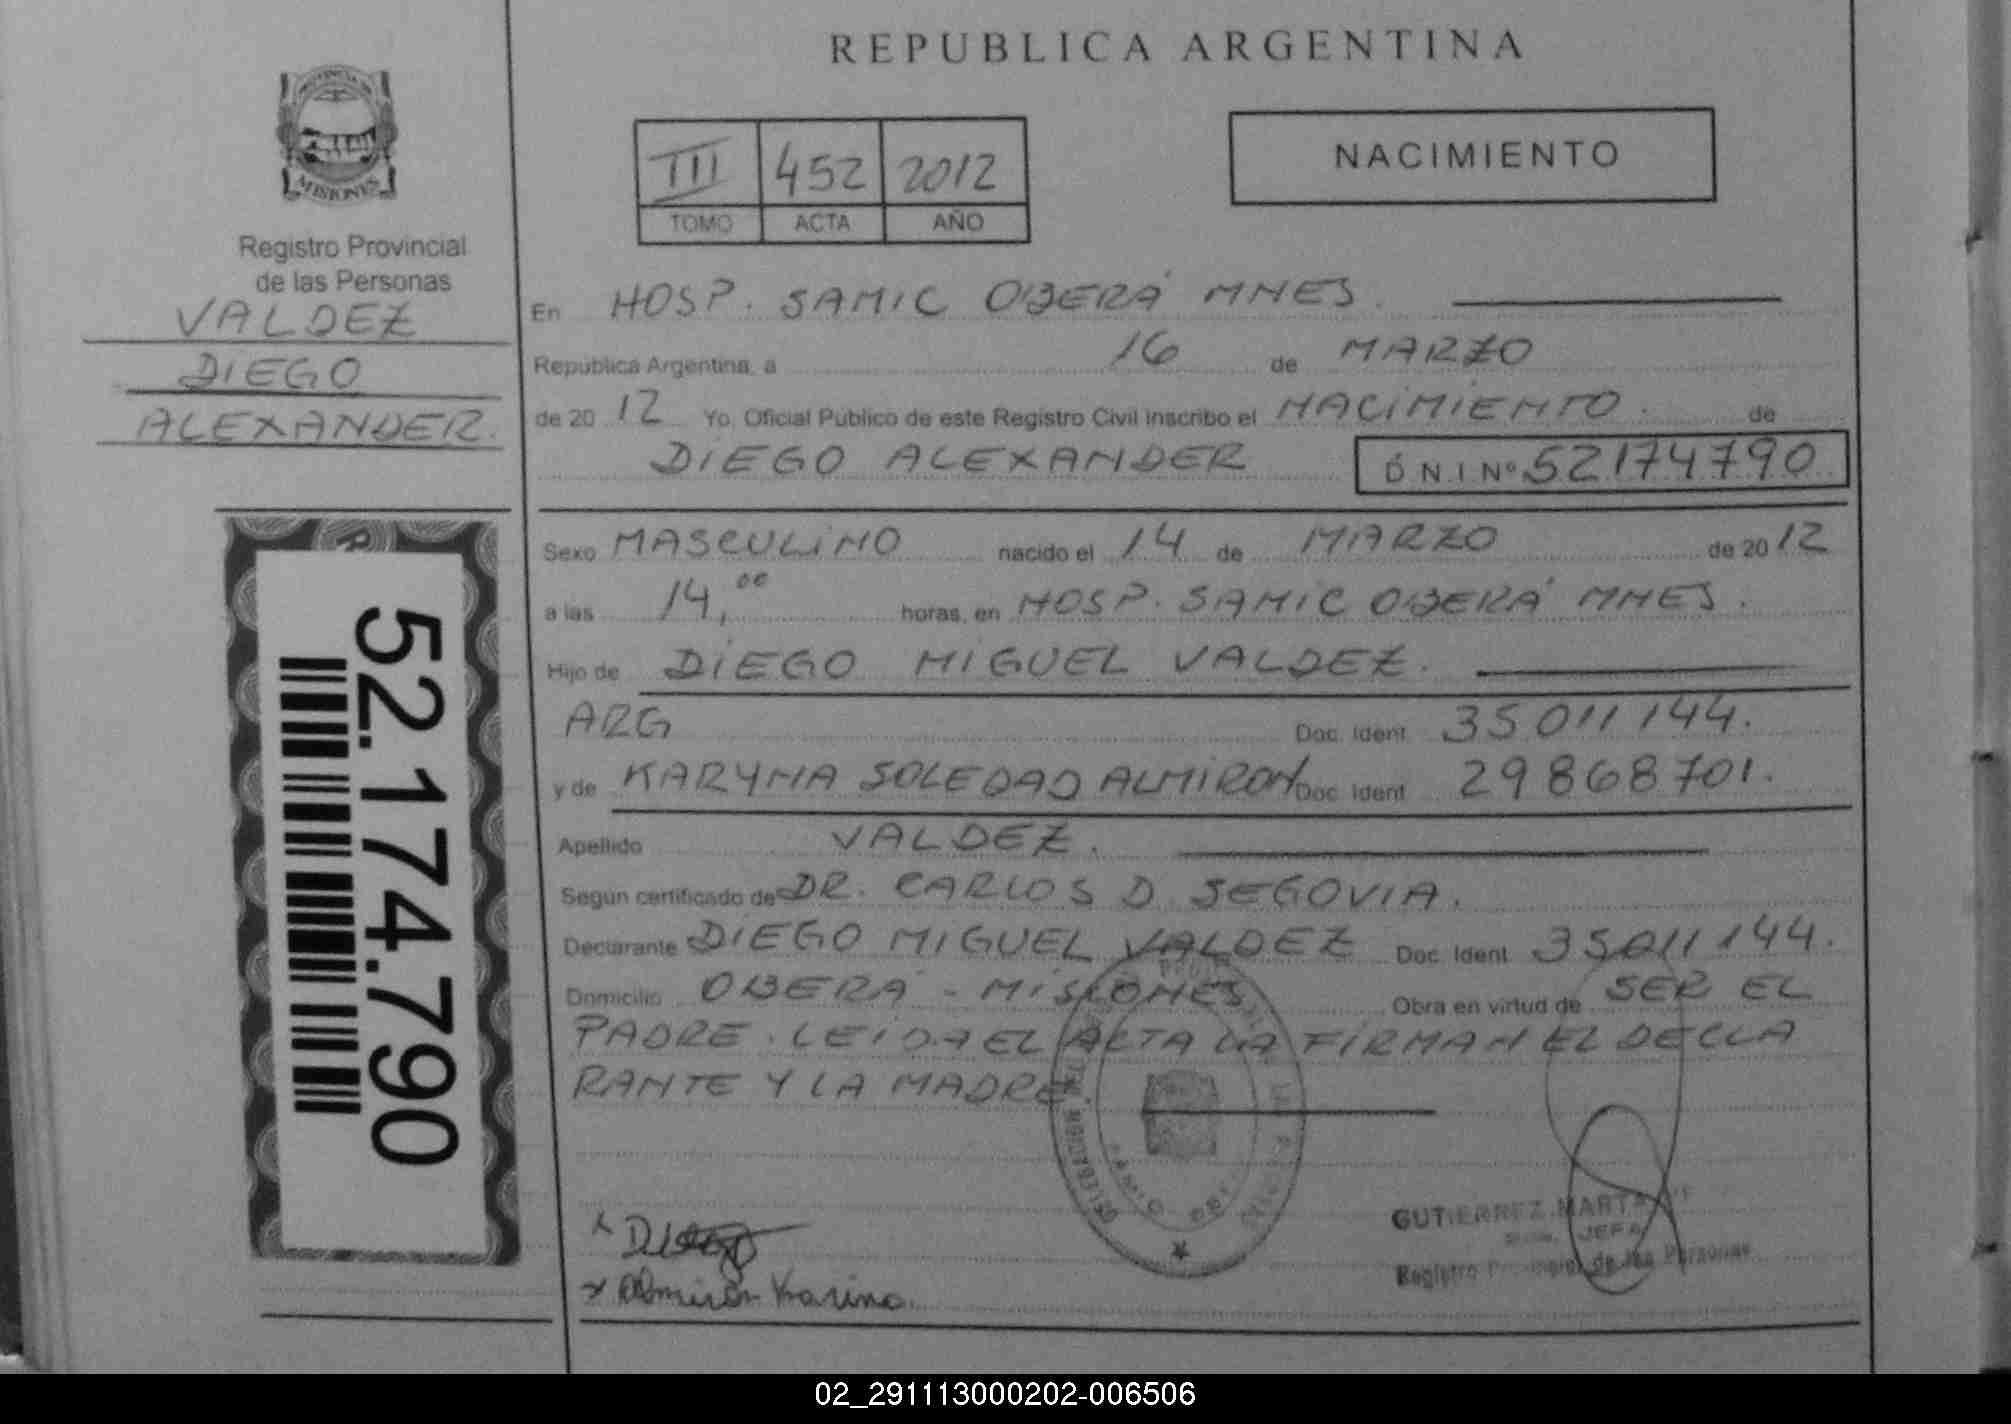 REPUBLICA ARGENTINA
PROVINCIA DE
MISIONES
Registro Provincial
de las Personas
VALDEZ
DIEGO
ALEXANDER.
52.174.790
III 452 2012
TOMO ACTA AÑO
NACIMIENTO
En HOSP. SAMIC OBERÁ MNES.
República Argentina, a 16 de MARZO
de 20 12 Yo, Oficial Público de este Registro Civil inscribo el NACIMIENTO. de
DIEGO ALEXANDER D N I Nº 52174790
Sexo MASCULINO nacido el 14 de MARZO de 20 12
a las 14,00 horas, en HOSP. SAMIC OBERÁ MNES.
Hijo de DIEGO MIGUEL VALDEZ.
ARG Doc. Ident. 35011144.
y de KARYNA SOLEDAD ALMIRON Doc. Ident. 29868701.
Apellido VALDEZ.
Según certificado de DR. CARLOS D. SEGOVIA.
Declarante DIEGO MIGUEL VALDEZ Doc. Ident. 35011144.
Domicilio OBERÁ - MISIONES Obra en virtud de SER EL
PADRE. LEIDA EL ACTA LA FIRMAN EL DECLA
RANTE Y LA MADRE
x Diego
x Almirón Karina.
GUTIERREZ MARTA
JEFA
Registro Provincial de las Personas
02_291113000202-006506